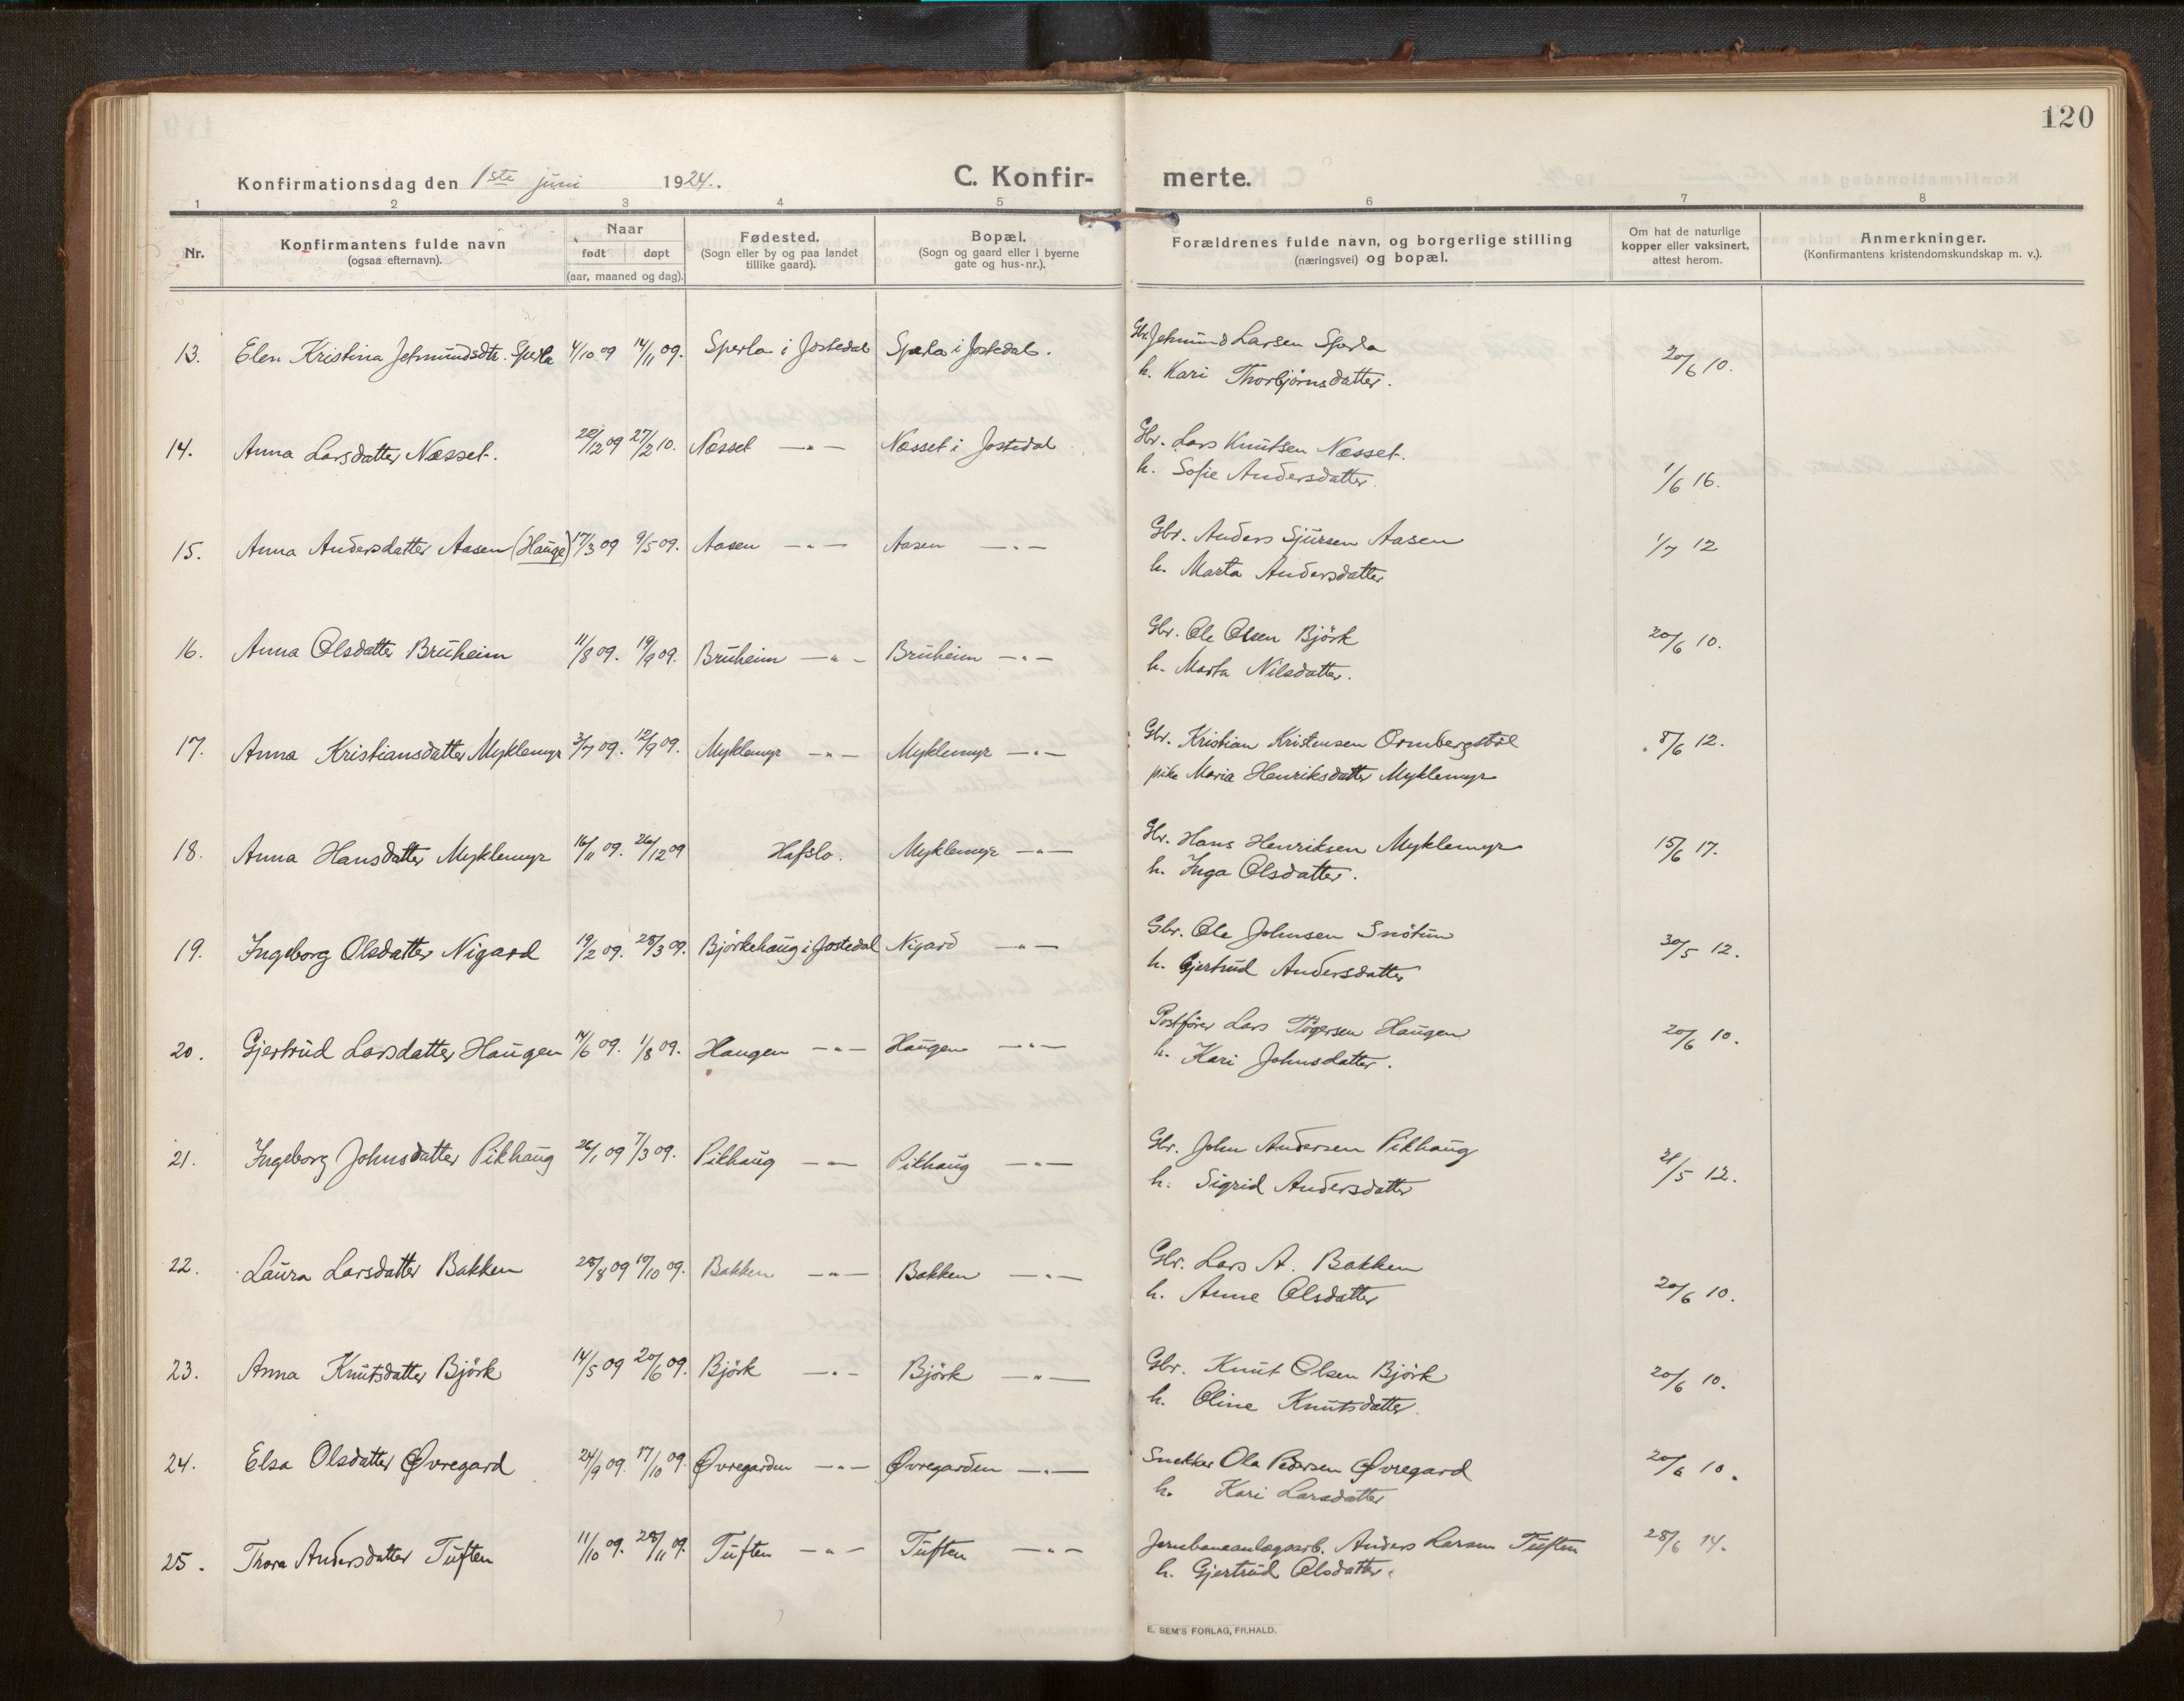 120
Konfirmationsdag den 1ste juni 1924.
C. Konfir- merte.
1 2 3 4 5 6 7 8
Nr.
Konfirmantens fulde navn
(ogsaa efternavn).
Naar
født døpt
(aar, maaned og dag).
Fødested.
(Sogn eller by og paa landet
tillike gaard).
Bopæl.
(Sogn og gaard eller i byerne
gate og hus-nr.).
Forældrenes fulde navn, og borgerlige stilling
(næringsvei) og bopæl.
Om hat de naturlige
kopper eller vaksinert,
attest herom.
Anmerkninger.
(Konfirmantens kristendomskundskap m. v.).
13. Elen Kristina Jetmundsdtr. Sperla 4/10 09 14/11 09. Sperla i Jostedal Sperla i Jostedal. Gbr. Jetmund Larsen Sperla 20/6 10.
h. Kari Thorbjørnsdatter.
14. Anna Larsdatter Næsset. 22/12 09 27/2 10. Næsset —"— Næsset i Jostedal Gbr. Lars Knutsen Næsset. 1/6 16.
h. Sofie Andersdatter.
15. Anna Andersdatter Aasen (Hauge) 17/3 09 9/5 09. Aasen —"— Aasen —"— Gbr. Anders Sjursen Aasen 1/7 12
h. Marta Andersdatter
16. Anna Olsdatter Bruheim 11/8 09. 19/9 09. Bruheim —"— Bruheim —"— Gbr. Ole Olsen Björk 20/6 10.
h. Marta Nilsdatter.
17. Anna Kristiansdatter Myklemyr 3/7 09. 12/9 09. Myklemyr —"— Myklemyr —"— Gbr. Kristian Kristensen Ormbergstöl 8/6 12.
pike Maria Henriksdatter Myklemyr
18. Anna Hansdatter Myklemyr 16/11 09. 26/12 09 Hafslo. Myklemyr —"— Gbr. Hans Henriksen Myklemyr 15/6 17.
h. Inga Olsdatter.
19. Ingeborg Olsdatter Nigard 19/2 09. 28/3 09. Björkehaug i Jostedal Nigard —"— Gbr. Ole Johnsen Snötun 30/5 12.
h. Gjertrud Andersdatter
20. Gjertrud Larsdatter Haugen 14/6 09. 1/8 09. Haugen —"— Haugen —"— Postfører Lars Tögersen Haugen 20/6 10.
h. Kari Johnsdatter.
21. Ingeborg Johnsdatter Pikhaug 26/1 09 7/3 09. Pikhaug —"— Pikhaug —"— Gbr. John Andersen Pikhaug 21/5 12.
h. Sigrid Andersdatter
22. Laura Larsdatter Bakken 28/8 09 10/10 09. Bakken —"— Bakken —"— Gbr. Lars A. Bakken 20/6 10.
h. Anne Olsdatter
23. Anna Knutsdatter Björk 14/5 09 20/6 09. Björk —"— Björk —"— Gbr. Knut Olsen Björk 20/6 10.
h. Oline Knutsdatter.
24. Elsa Olsdatter Øvregard 24/9 09. 17/10 09. Øvregarden —"— Øvregarden —"— Snekker Ola Pedersen Øvregard 20/6 10.
h. Kari Larsdatter
25. Thora Andersdatter Tuften 11/10 09. 28/11 09. Tuften —"— Tuften —"— Jernbaneanlægsarb. Anders Larsen Tuften 28/6 14.
h. Gjertrud Olsdatter.
E. SEM'S FORLAG, FR.HALD.